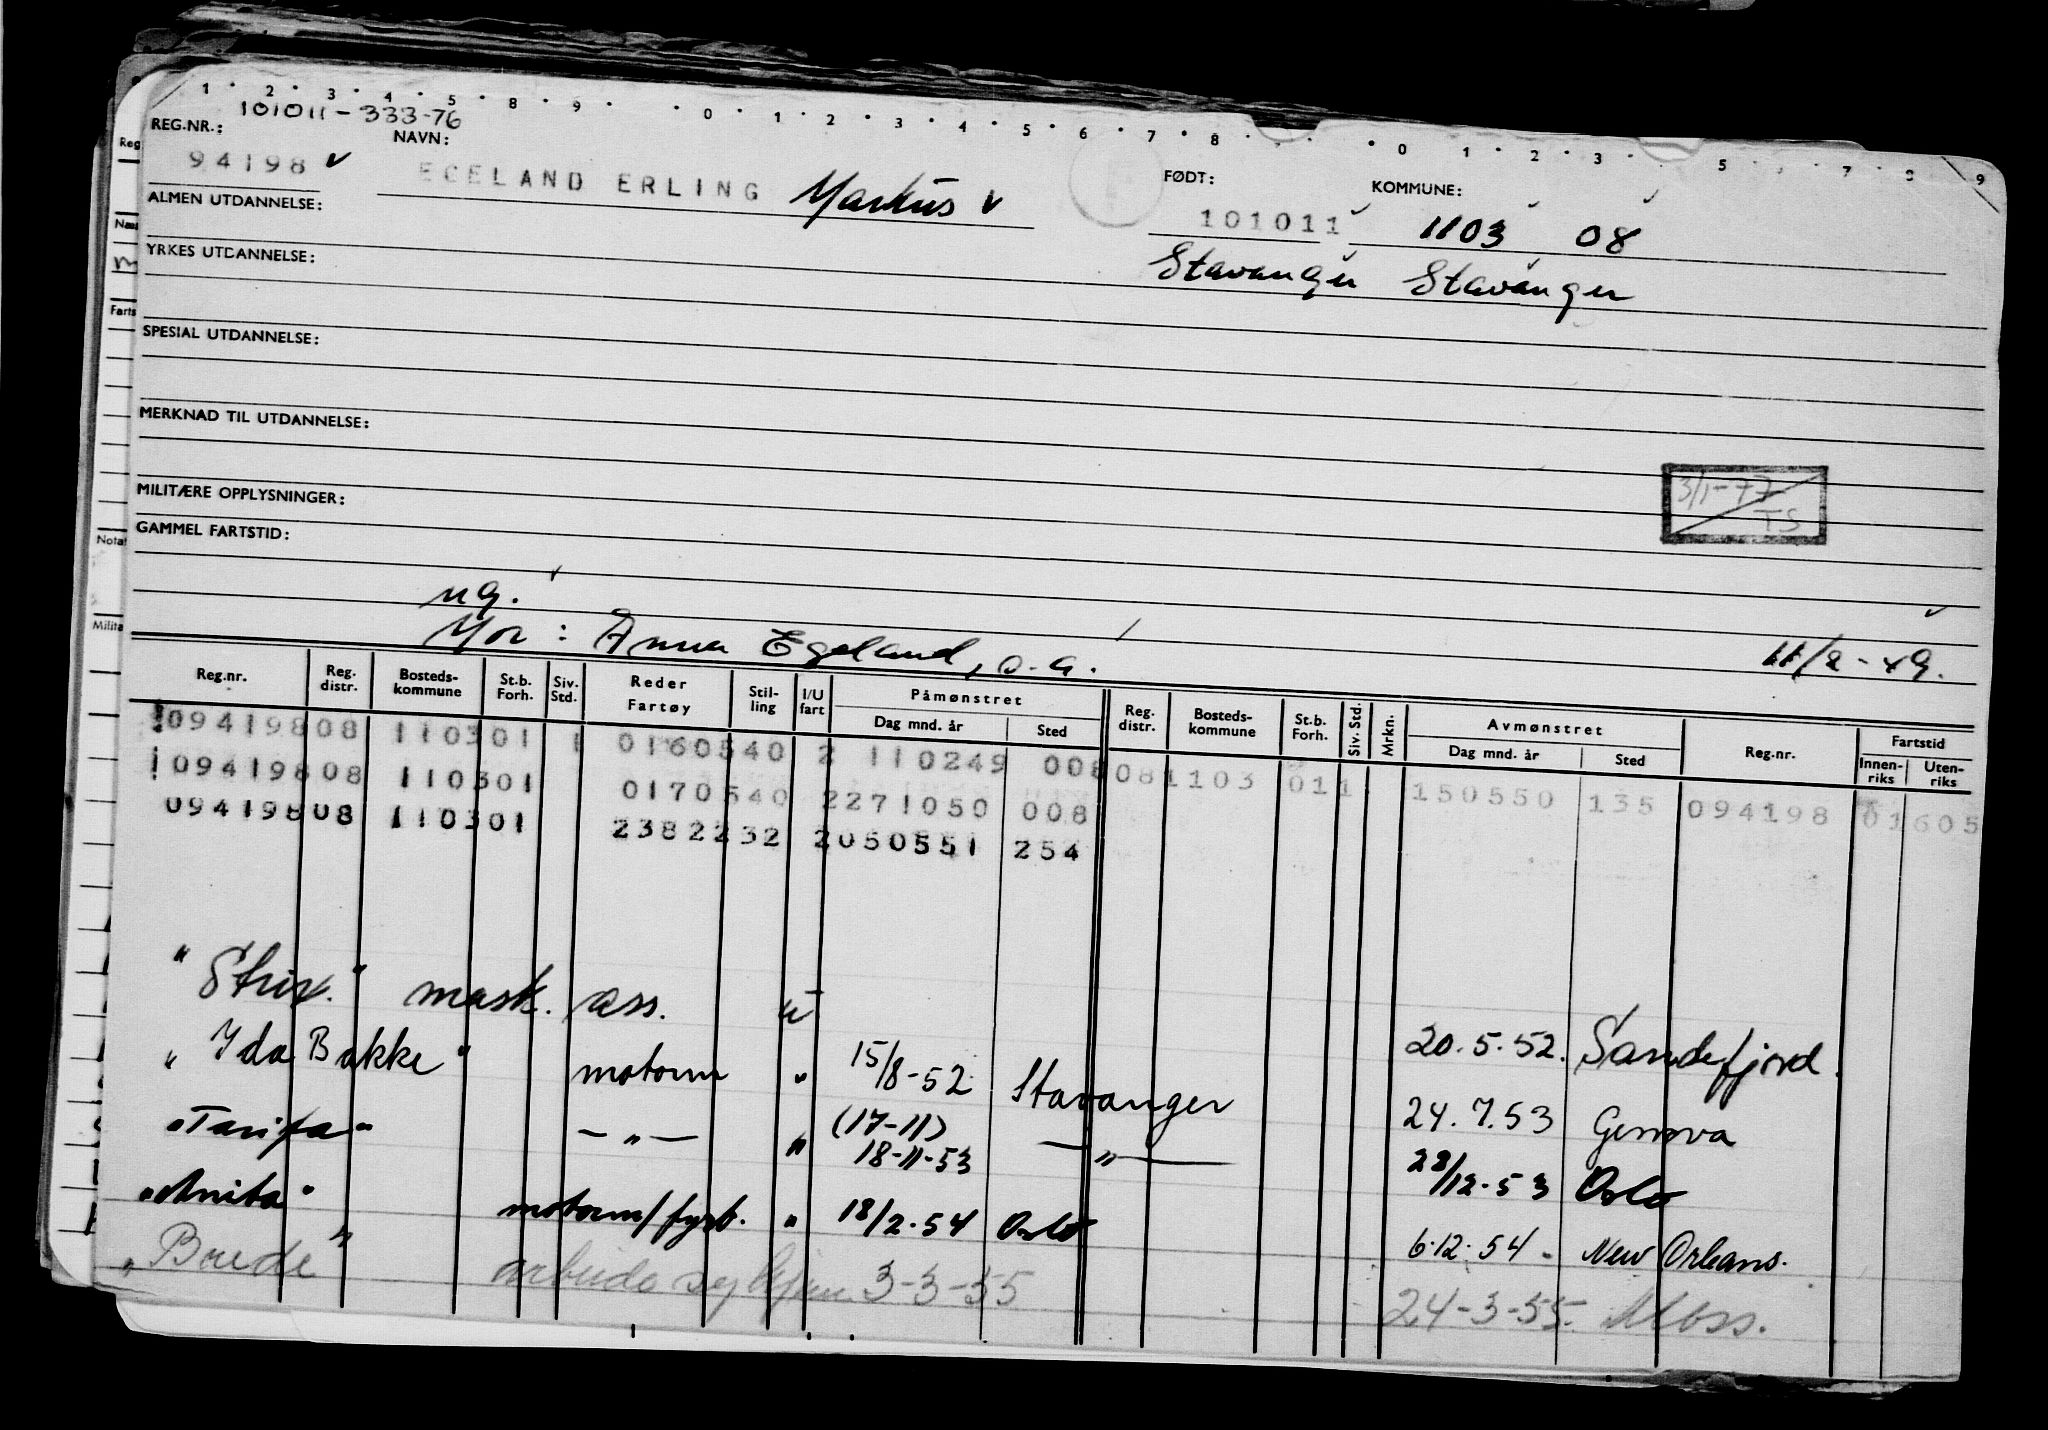 1 · 2 · 3 · 4 · 5 · 8 · 9 · · 0 · 1 · 2 · 3 · 4 · 5 · 6 · 7 · 8 · · 0 · 1 · 2 · 3 · 5 7 · 9
101011-333-76
REG.NR.: NAVN: FØDT: KOMMUNE:
94198 EGELAND ERLING Markus 101011 1103 08
ALMEN UTDANNELSE:
Stavanger Stavanger
YRKES UTDANNELSE:
SPESIAL UTDANNELSE:
MERKNAD TIL UTDANNELSE:
3/1-77
TS
MILITÆRE OPPLYSNINGER:
GAMMEL FARTSTID:
ug.
Mor: Anna Egeland, s.a. 11/2-49.
Reg.nr. Reg. distr. Bosteds-kommune St.b. Forh. Siv. Std. Reder Fartøy Stil-ling I/U fart Påmønstret Dag mnd. år Sted Reg. distr. Bosteds-kommune St.b. Forh. Siv. Std. Mrkn. Avmønstret Dag mnd. år Sted Reg.nr. Fartstid Innen-riks Uten-riks
09419808 110301 1 0160540 2 110249 008 081103 011 150550 135 094198 01605
09419808 110301 0170540 2271050 008
09419808 110301 2382232 2050551 254
"Strix." mask. ass. u 20.5.52. Sandefjord.
"Ida Bakke" motorm " 15/8-52 Stavanger 24.7.53 Genova
"Tarifa" — " — " (17-11) 18-11-53 — " — 28/12-53 Oslo
"Anita" motorm/fyrb. " 18/2-54 Oslo 6.12.54 - New Orleans.
"Borde" 3-3-55 24-3-55. Moss.